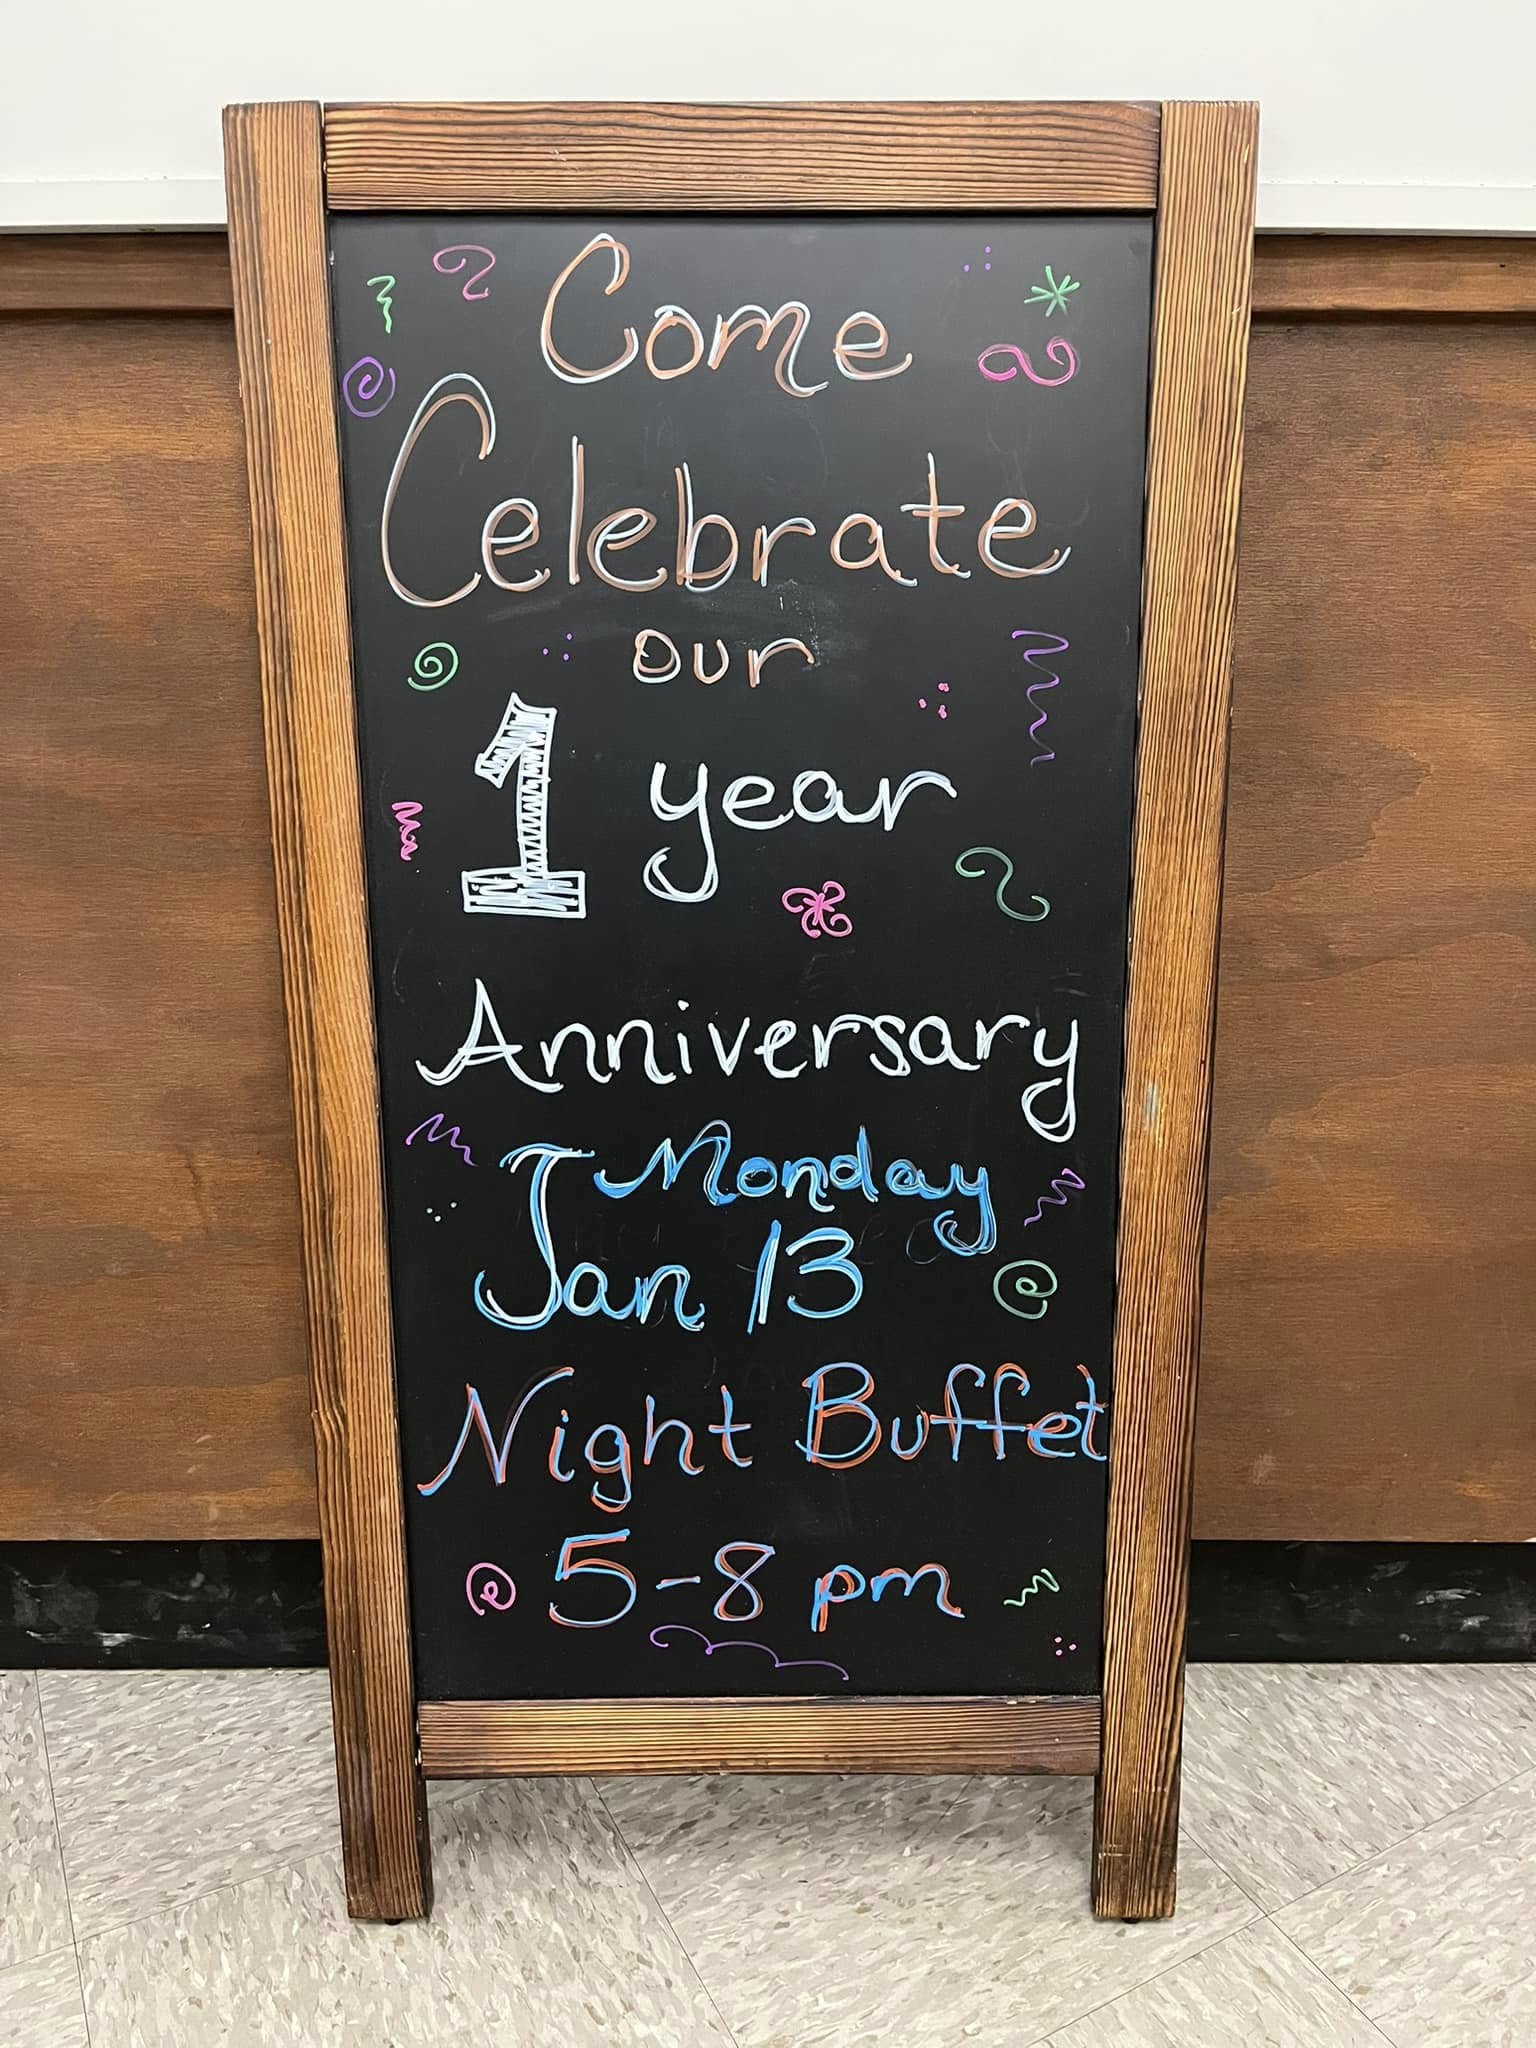 Come
Celebrate
our
1 year
Anniversary
Monday
Jan 13
Night Buffet
5-8 pm